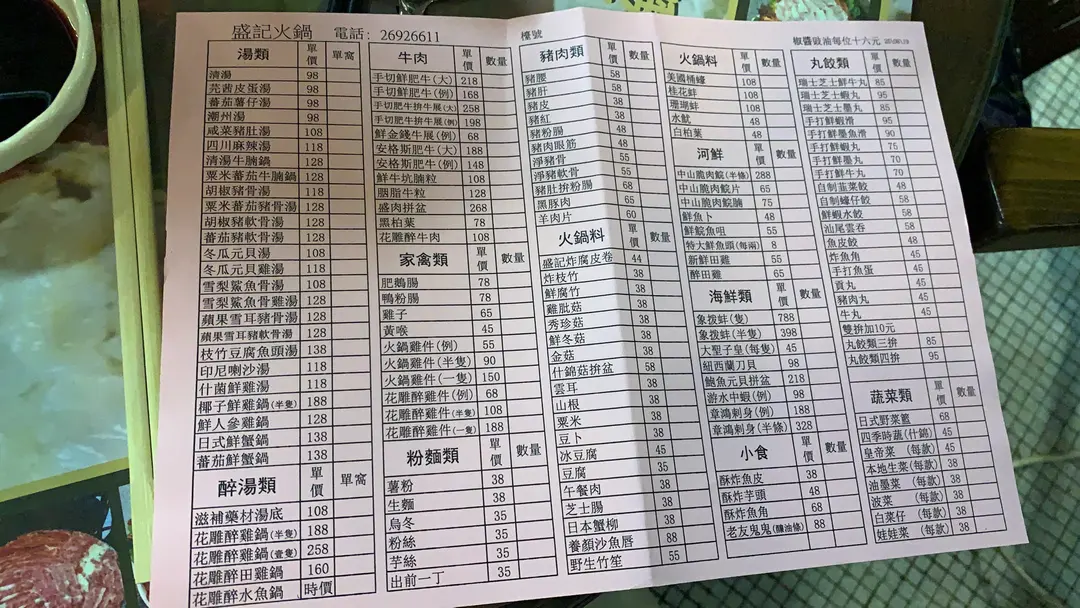 盛記火鍋 電話: 26926611 檯號 椒醬豉油每位十六元
湯類 單價 單窩
清湯 98
芫茜皮蛋湯 98
蕃茄薯仔湯 98
潮州湯 98
咸菜豬肚湯 108
四川麻辣湯 118
清湯牛腩鍋 128
粟米蕃茄牛腩鍋 128
胡椒豬骨湯 118
粟米蕃茄豬骨湯 128
胡椒豬軟骨湯 128
蕃茄豬軟骨湯 128
冬瓜元貝湯 108
冬瓜元貝雞湯 118
雪梨鯊魚骨湯 108
雪梨鯊魚骨雞湯 128
蘋果雪耳豬骨湯 128
蘋果雪耳豬軟骨湯 128
枝竹豆腐魚頭湯 138
印尼喇沙湯 118
什菌鮮雞湯 118
椰子鮮雞鍋(半隻) 188
鮮人參雞鍋 128
日式鮮蟹鍋 138
蕃茄鮮蟹鍋 138
醉湯類 單價 單窩
滋補藥材湯底 108
花雕醉雞鍋(半隻) 188
花雕醉雞鍋(壹隻) 258
花雕醉田雞鍋 160
花雕醉水魚鍋 時價
牛肉 單價 數量
手切鮮肥牛(大) 218
手切鮮肥牛(例) 168
手切肥牛拚牛展(大) 258
手切肥牛拚牛展(例) 198
鮮金錢牛展(例) 68
安格斯肥牛(大) 188
安格斯肥牛(例) 148
鮮牛坑腩粒 108
胭脂牛粒 128
盛肉拼盆 268
黑柏葉 78
花雕醉牛肉 108
家禽類 單價 數量
肥鵝腸 78
鴨粉腸 78
雞子 65
黃喉 45
火鍋雞件(例) 55
火鍋雞件(半隻) 90
火鍋雞件(一隻) 150
花雕醉雞件(例) 68
花雕醉雞件(半隻) 108
花雕醉雞件(一隻) 188
粉麵類 單價 數量
薯粉 38
生麵 38
烏冬 35
粉絲 35
芋絲 35
出前一丁 35
豬肉類 單價 數量
豬腰 58
豬肝 58
豬皮 38
豬紅 38
豬粉腸 48
豬肉眼筋 48
淨豬骨 55
淨豬軟骨 55
豬肚拚粉腸 68
黑豚肉 65
羊肉片 60
火鍋料 單價 數量
盛記炸腐皮卷 44
炸枝竹 38
鮮腐竹 38
雞肶菇 38
秀珍菇 38
鮮冬菇 38
金菇 38
什錦菇拚盆 58
雲耳 38
山根 38
粟米 38
豆卜 38
冰豆腐 45
豆腐 35
午餐肉 38
芝士腸 38
日本蟹柳 38
養顏沙魚唇 88
野生竹笙 55
火鍋料 單價 數量
美國桶蠔 108
桂花蚌 108
珊瑚蚌 108
水魷 48
白柏葉 48
河鮮 單價 數量
中山脆肉鯇(半條) 288
中山脆肉鯇片 65
中山脆肉鯇腩 75
鮮魚卜 48
鮮鯇魚咀 55
特大鮮魚頭(每兩) 8
新鮮田雞 55
醉田雞 65
海鮮類 單價 數量
象拔蚌(隻) 788
象拔蚌(半隻) 398
大聖子皇(每隻) 45
紐西蘭刀貝 98
鮑魚元貝拼盆 218
游水中蝦(例) 98
章鴻剌身(例) 188
章鴻剌身(半條) 328
小食 單價 數量
酥炸魚皮 38
酥炸芋頭 48
酥炸魚角 68
老友鬼鬼(釀油條) 88
丸餃類 單價 數量
瑞士芝士鮮牛丸 85
瑞士芝士蝦丸 95
瑞士芝士墨丸 85
手打鮮蝦滑 95
手打鮮墨魚滑 90
手打鮮蝦丸 75
手打鮮墨丸 70
手打鮮牛丸 70
自制韮菜餃 48
自制蠔仔餃 58
鮮蝦水餃 58
汕尾雲吞 58
魚皮餃 48
炸魚角 45
手打魚蛋 45
貢丸 45
豬肉丸 45
牛丸 45
雙拚加10元
丸餃類三拚 85
丸餃類四拚 95
蔬菜類 單價 數量
日式野菜籃 68
四季時蔬(什錦) 45
皇帝菜 (每款) 45
本地生菜(每款) 38
油墨菜 (每款) 38
菠菜 (每款) 38
白菜仔 (每款) 38
娃娃菜 (每款) 38